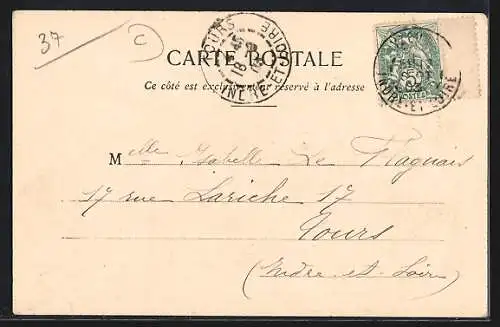 37
C
TOURS
18
INDRE-ET-LOIRE
CARTE POSTALE
Ce côté est exclusivement réservé à l'adresse
INDRE-ET-LOIRE
5
POSTES
Melle Isabelle Le Magnais
17 rue Lariche 17
Tours
(Indre-et-Loire)